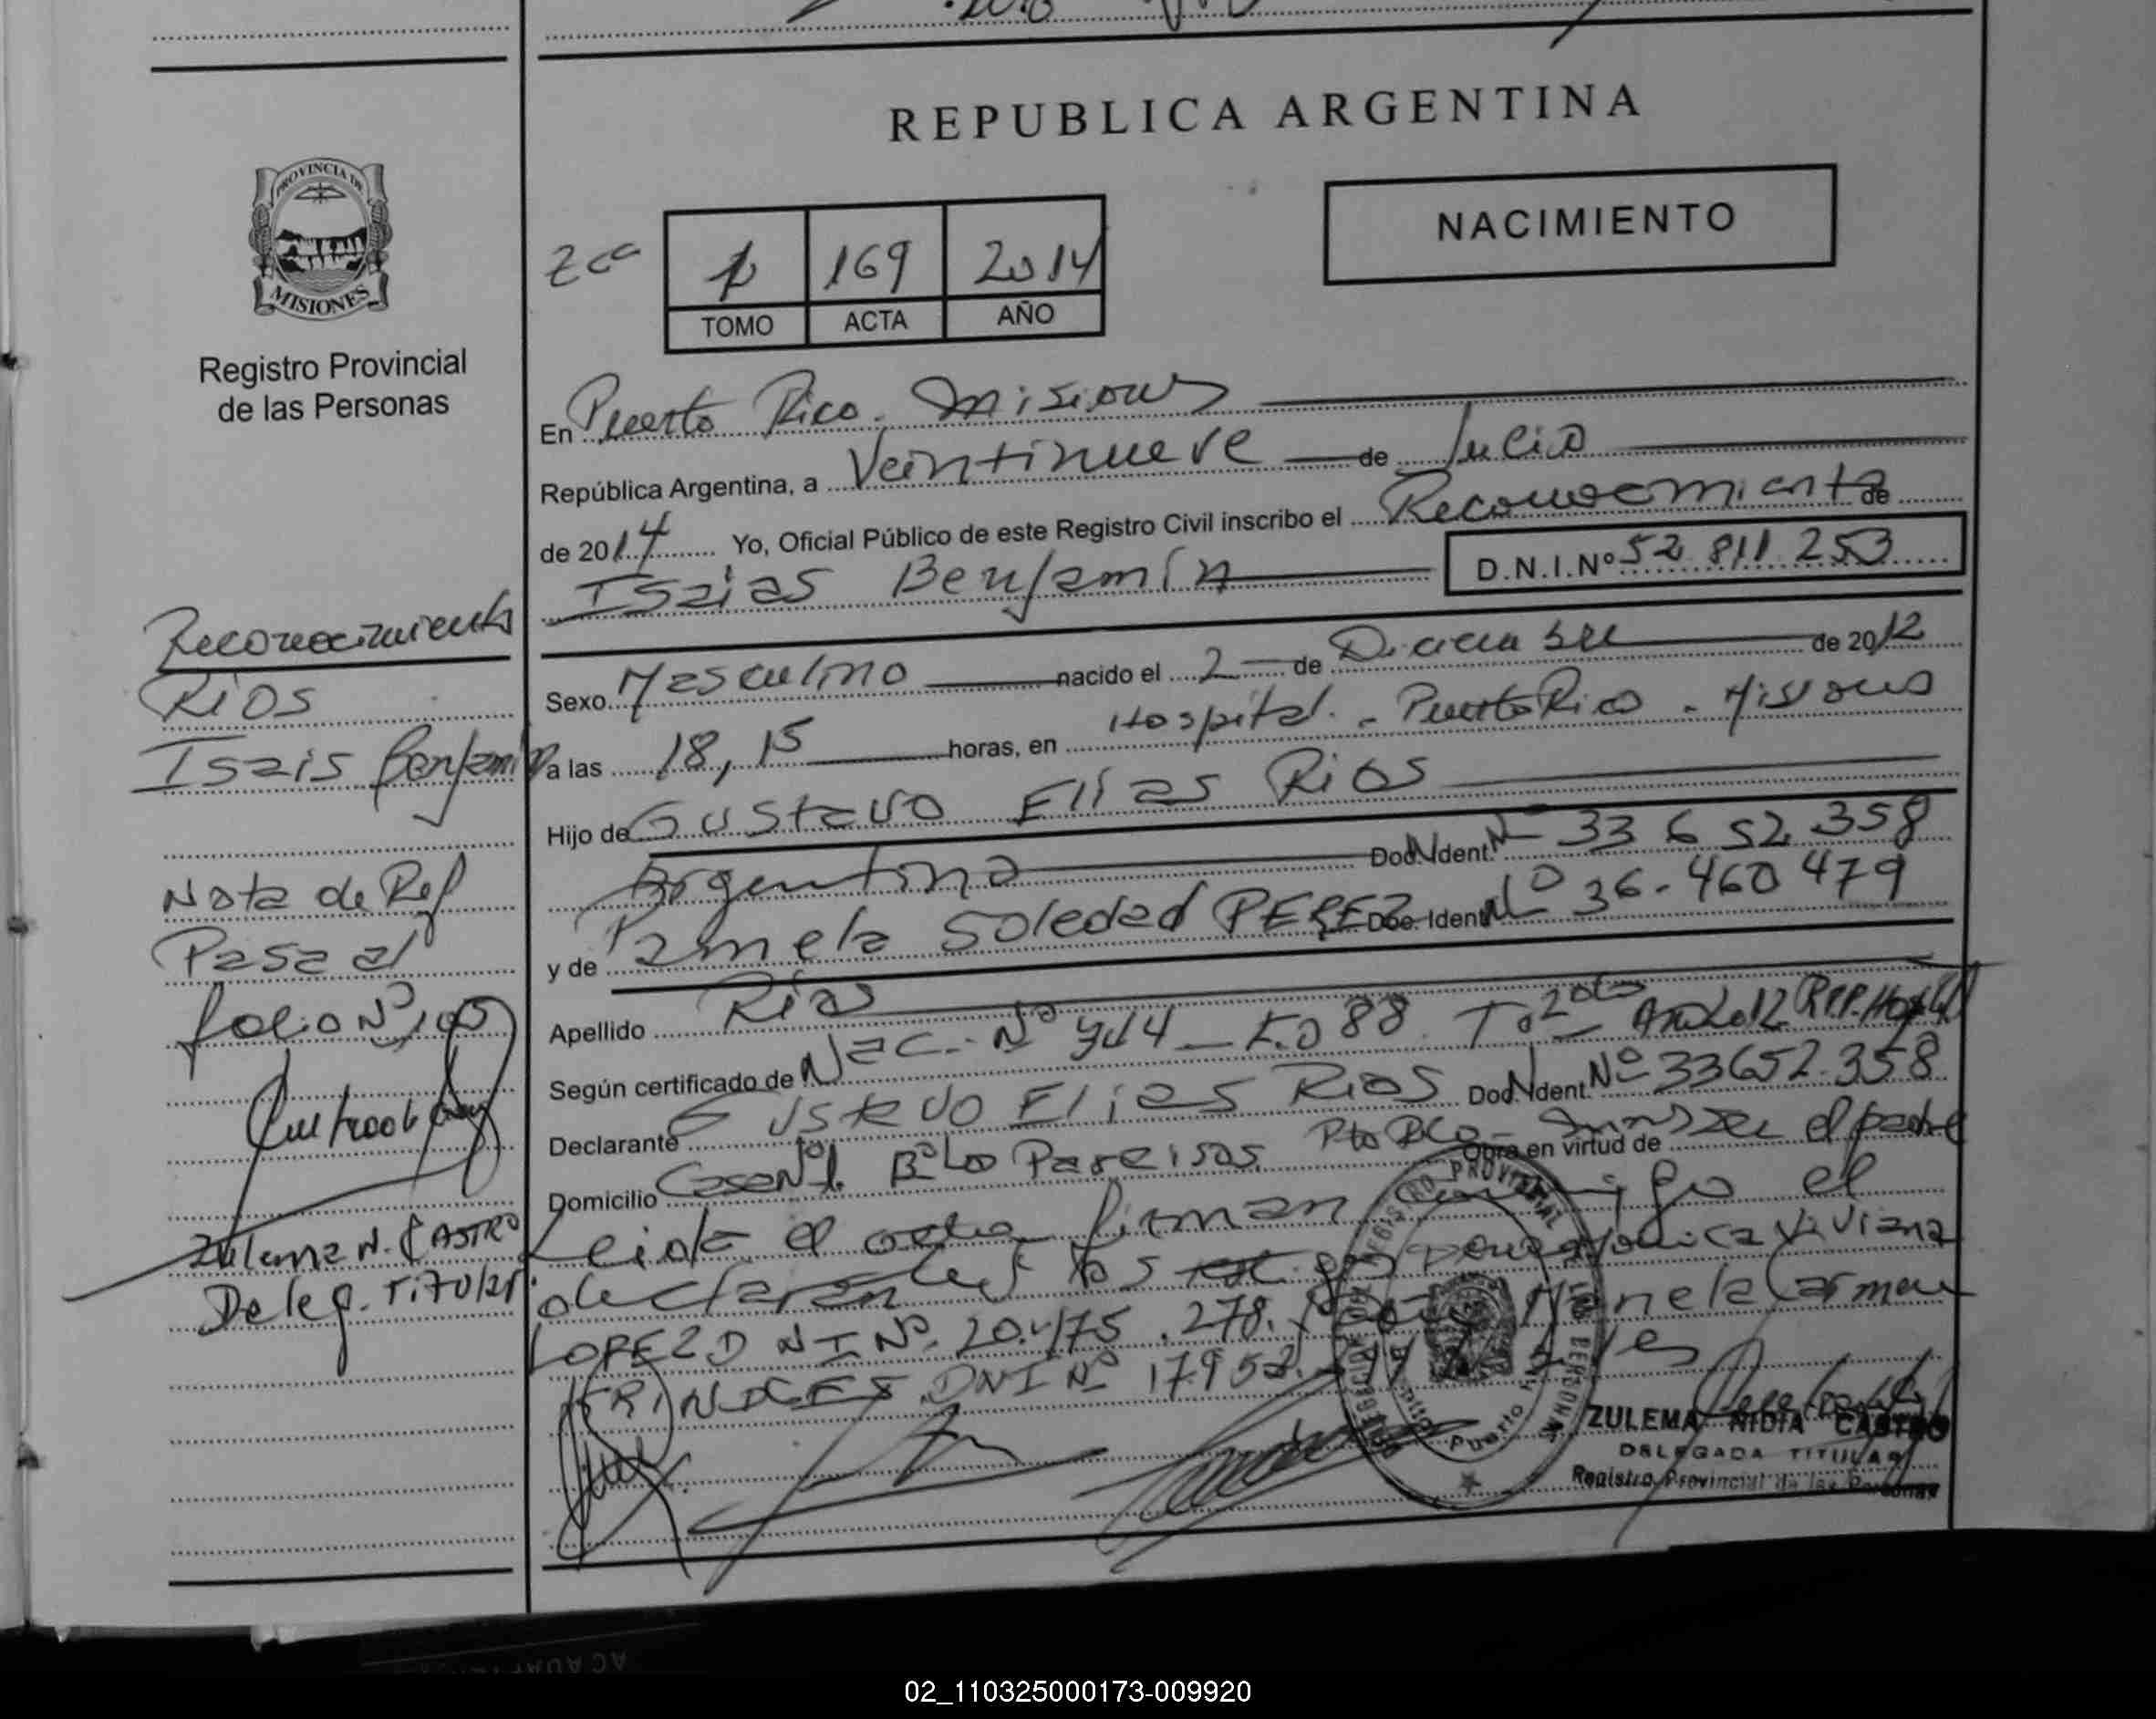 REPUBLICA ARGENTINA
NACIMIENTO
PROVINCIA DE
MISIONES
Registro Provincial
de las Personas
169 2014
TOMO ACTA AÑO
En Puerto Rico. Misiones
República Argentina, a Veintinueve de Julio
de 2014 Yo, Oficial Público de este Registro Civil inscribo el Reconocimiento de
Isaias Benjamín D.N.I.Nº 52 811 253
Sexo Masculino nacido el 2 de Diciembre de 2012
a las 18,15 horas, en Hospital - Puerto Rico - Misiones
Hijo de Gustavo Elías Rios
Argentina Doc. Ident. Nº 33 652 358
y de Pamela Soledad PEREZ Doc. Ident. Nº 36.460 479
Apellido Rios
Según certificado de Nac. Nº 914 - Fº 88 Tº 2do Año 2012
Declarante Gustavo Elias Rios Doc. Ident. Nº 33652.358
Domicilio Casa Nº 1 Bº Los Paraisos Pto Rco Obra en virtud de ser el padre
Leida el acta firman conmigo el
declarante y los testigos Viviana
LOPEZ DNI Nº 20.475.278. Mariela Carmen
DNI Nº 17.952.
ZULEMA NIDIA CASTRO
DELEGADA TITULAR
Registro Provincial de las Personas
Reconocimiento
RIOS
Isais Benjamin
Nota de Ref
Pasa al
folio Nº 105
Zulema N. CASTRO
Deleg. Titular
02_110325000173-009920